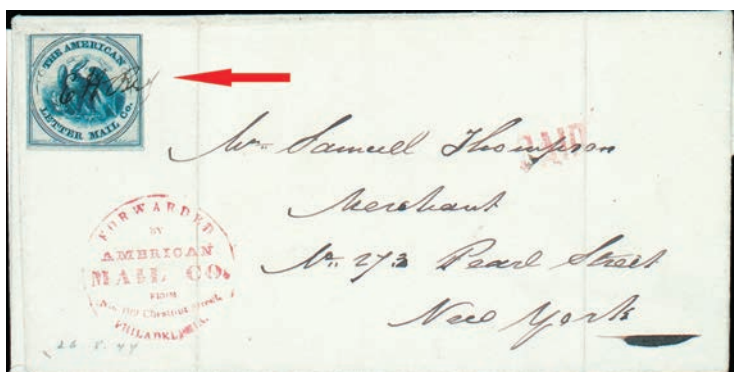 THE AMERICAN
LETTER MAIL Co.
PAID
Mr. Samuel Thompson
Merchant
No. 273 Pearl Street
New York
FORWARDED
BY
AMERICAN
MAIL CO.
FROM
No. 109 Chestnut Street,
PHILADELPHIA.